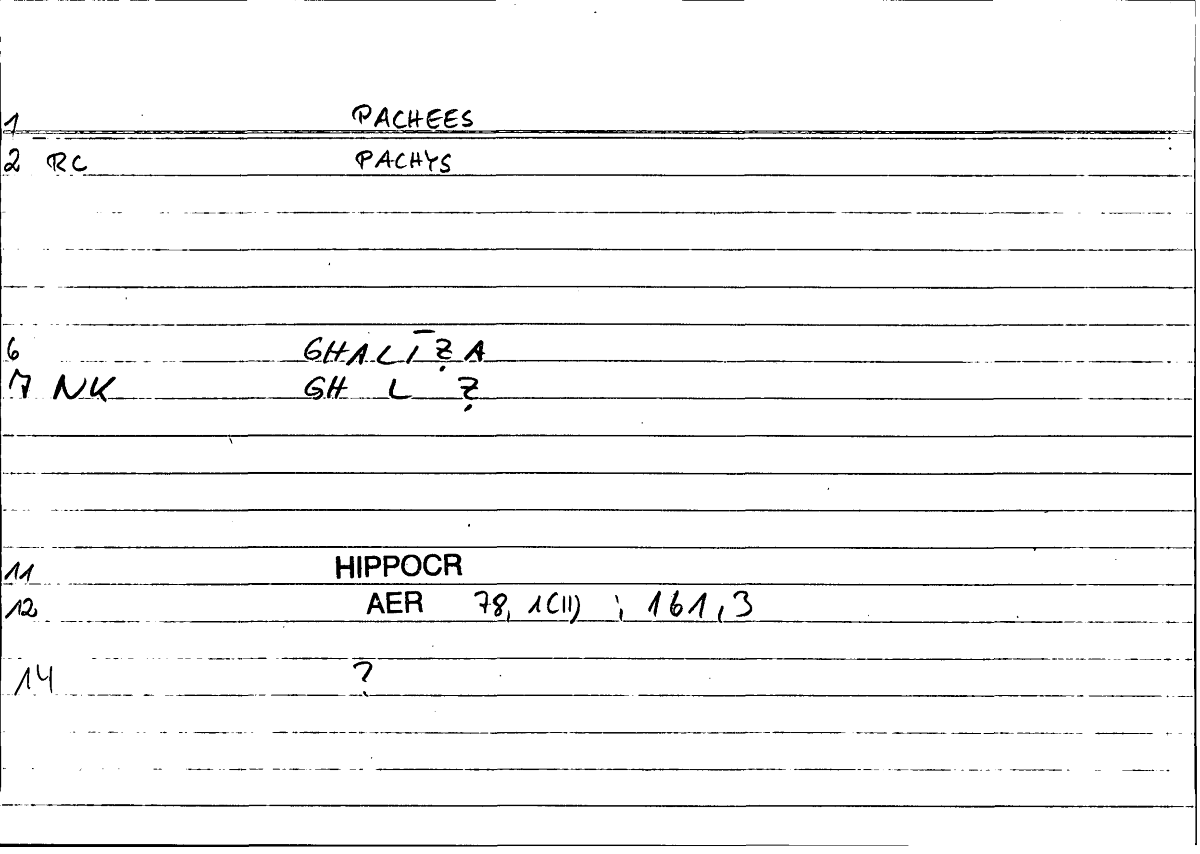 1 PACHEES
2 RC PACHYS
6 GHALĪẒA
7 NK GH L Ẓ
11 HIPPOCR
12 AER 78, 1(II) ; 161,3
14 ?